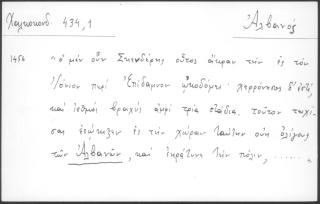 Χαλκοκονδ. 434,1 Ἀλβανός
1454 "ὁ μὲν οὖν Σκενδέρης οὗτος ἄκραν τὴν ἐς τὸν
Ἰόνιον περὶ Ἐπίδαμνον ᾠκοδόμει· χερρόνησος δ' ἐστί,
καὶ ἰσθμὸς βραχὺς ἀμφὶ τρία στάδια. τοῦτον τειχί-
σας ἐσῴκισεν ἐς τὴν χώραν ταύτην οὐκ ὀλίγους
τῶν Ἀλβανῶν, καὶ ἐκράτυνε τὴν πόλιν, ...... "